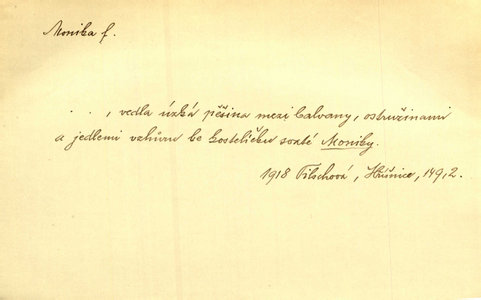 Monika f.
. . ., vedla úzká pěšina mezi balvany, ostružinami
a jedlemi vzhůru ke kostelíčku svaté Moniky.
1918 Tilschová, Hříšnice, 149,2.